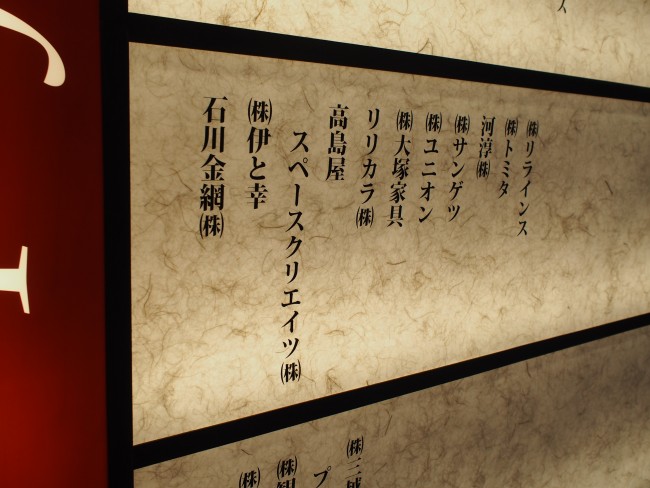 ㈱リラインス
㈱トミタ
河淳㈱
㈱サンゲツ
㈱ユニオン
㈱大塚家具
リリカラ㈱
高島屋
スペースクリエイツ㈱
㈱伊と幸
石川金網㈱
㈱三
プ
㈱
㈱